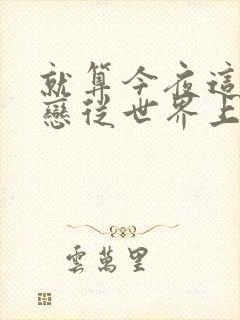 就算今夜這
戀從世界上
雲萬里